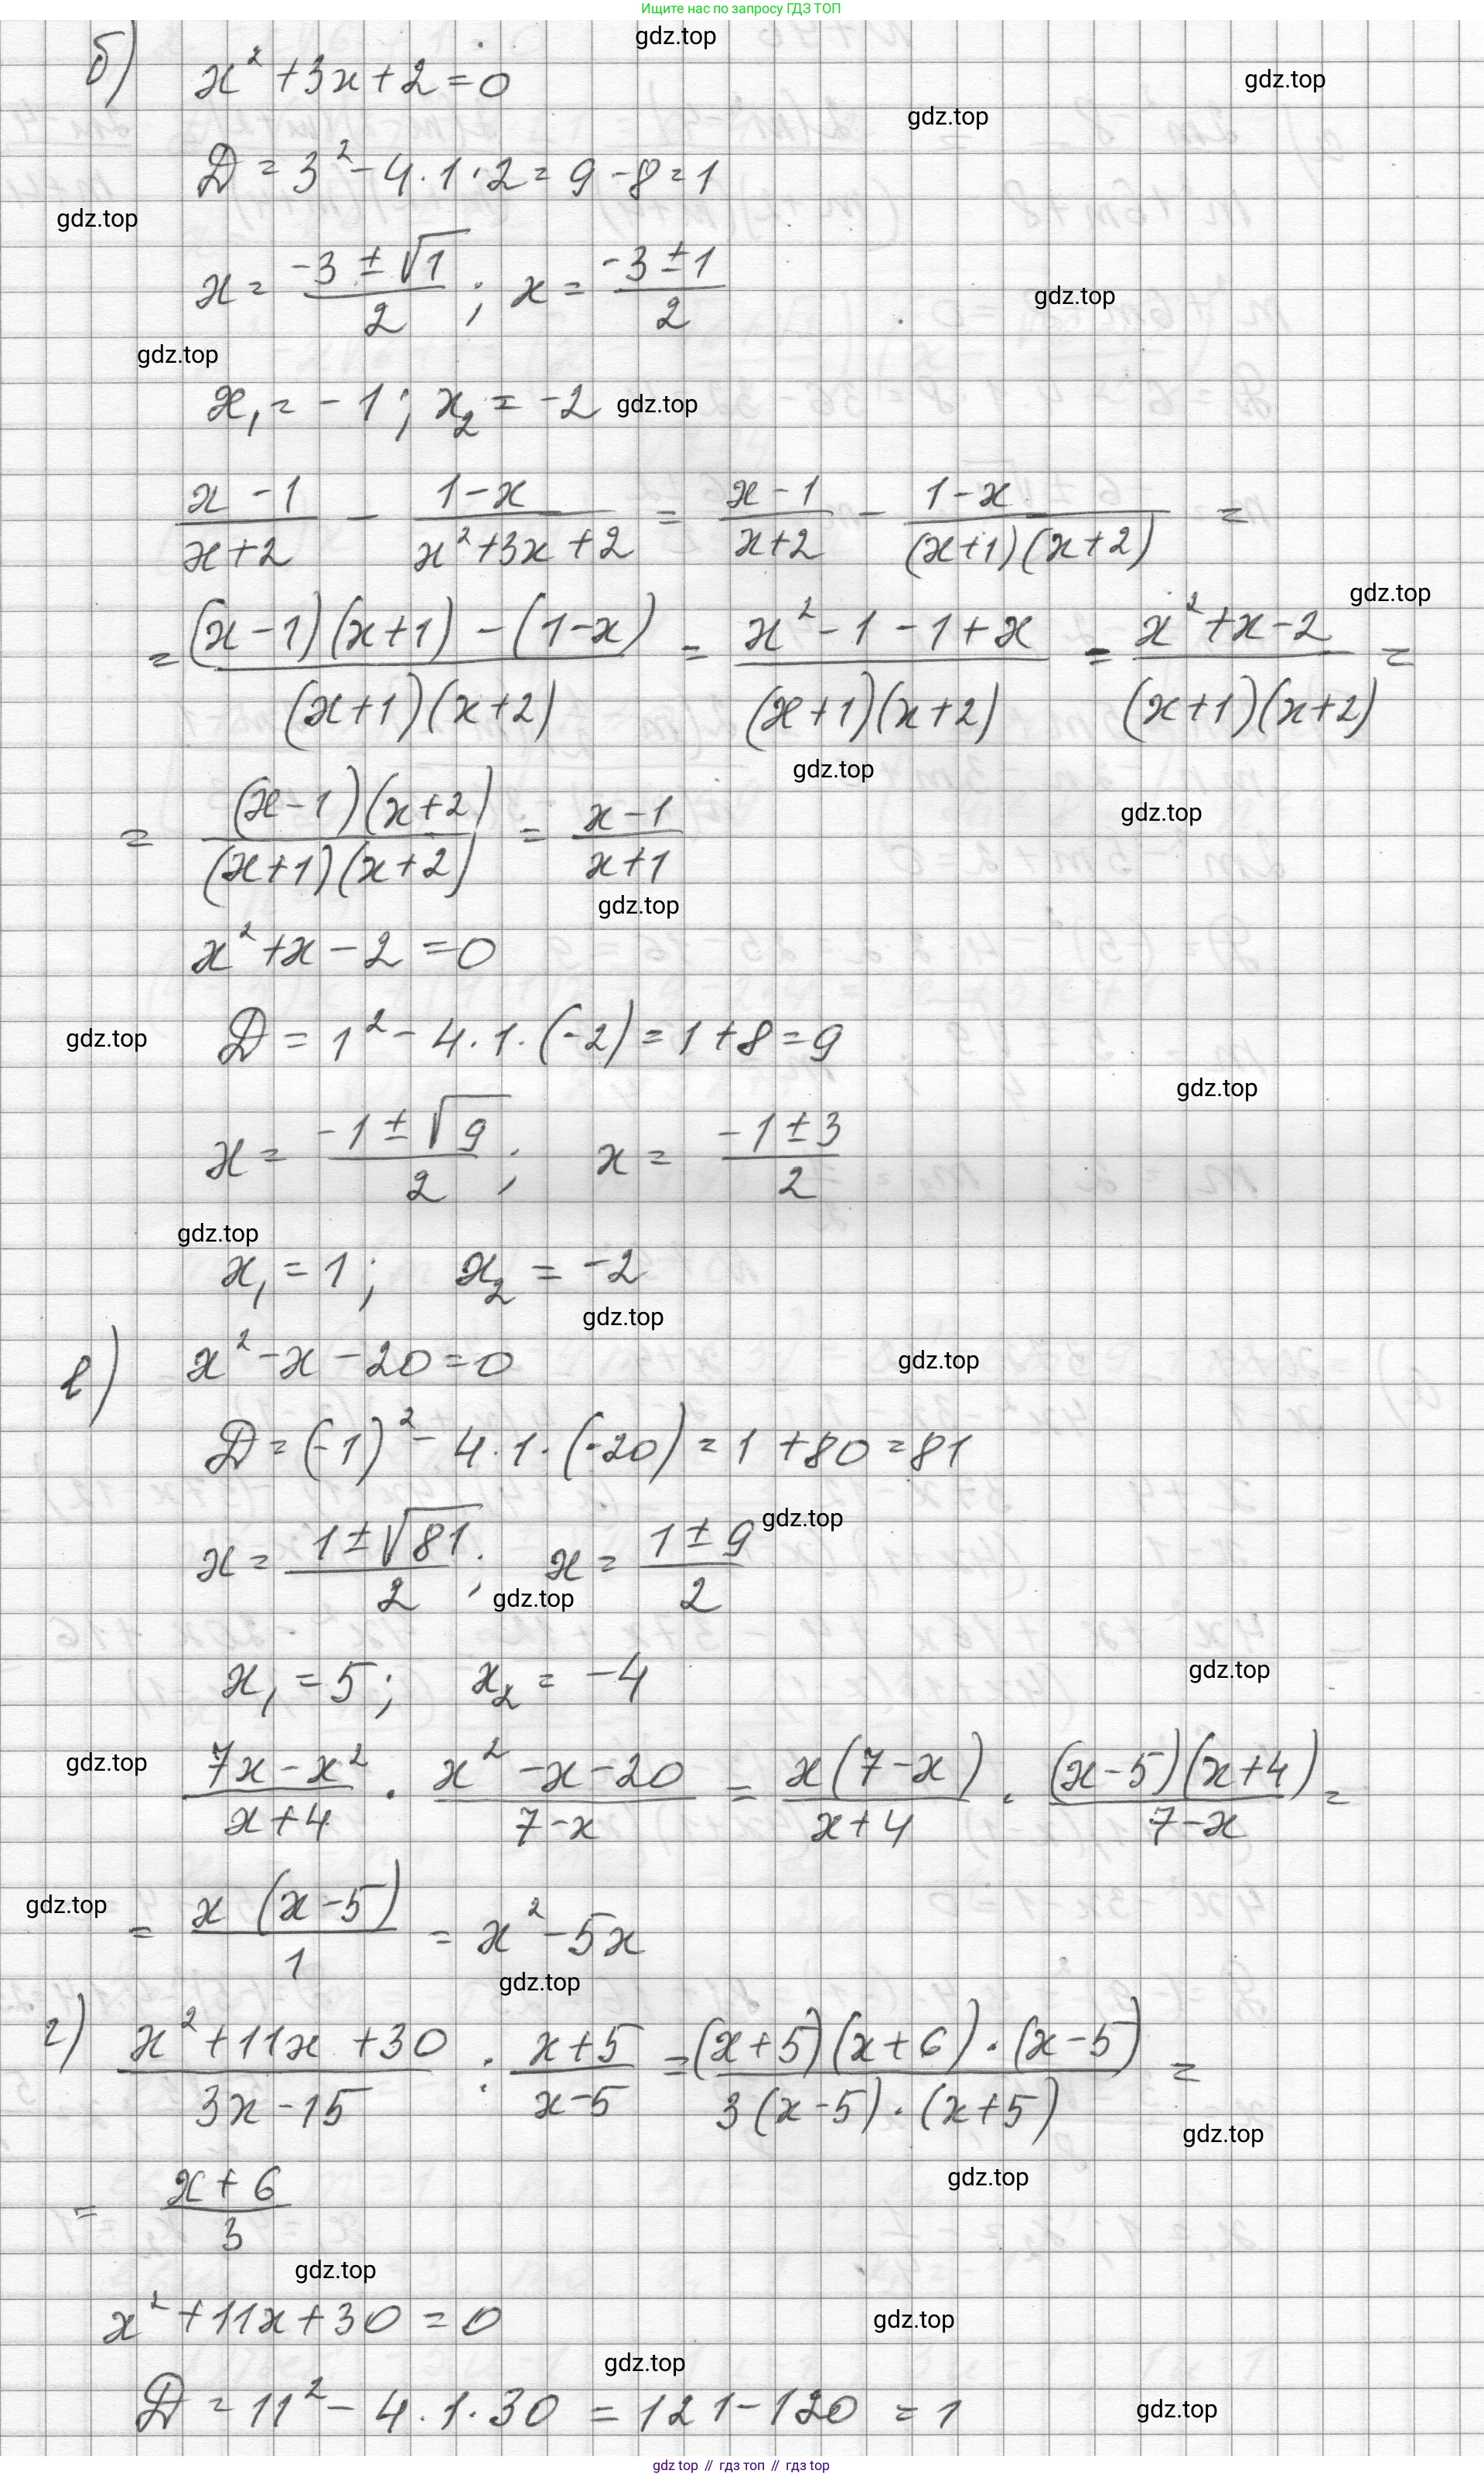 Ищите нас по запросу ГДЗ ТОП
gdz.top
б) x² + 3x + 2 = 0
gdz.top
gdz.top
D = 3² - 4 · 1 · 2 = 9 - 8 = 1
gdz.top
x = (-3 ± √1)/2 ; x = (-3 ± 1)/2
gdz.top
gdz.top
x₁ = -1 ; x₂ = -2
gdz.top
(x - 1)/(x + 2) - (1 - x)/(x² + 3x + 2) = (x - 1)/(x + 2) - (1 - x)/((x + 1)(x + 2)) =
gdz.top
= ((x - 1)(x + 1) - (1 - x))/((x + 1)(x + 2)) = (x² - 1 - 1 + x)/((x + 1)(x + 2)) = (x² + x - 2)/((x + 1)(x + 2)) =
gdz.top
gdz.top
= ((x - 1)(x + 2))/((x + 1)(x + 2)) = (x - 1)/(x + 1)
gdz.top
x² + x - 2 = 0
gdz.top
D = 1² - 4 · 1 · (-2) = 1 + 8 = 9
gdz.top
x = (-1 ± √9)/2 ; x = (-1 ± 3)/2
gdz.top
x₁ = 1 ; x₂ = -2
gdz.top
в) x² - x - 20 = 0
gdz.top
D = (-1)² - 4 · 1 · (-20) = 1 + 80 = 81
gdz.top
x = (1 ± √81)/2 ; x = (1 ± 9)/2
gdz.top
x₁ = 5 ; x₂ = -4
gdz.top
gdz.top
(7x - x²)/(x + 4) · (x² - x - 20)/(7 - x) = (x(7 - x))/(x + 4) · ((x - 5)(x + 4))/(7 - x) =
gdz.top
= (x (x - 5))/1 = x² - 5x
gdz.top
г) (x² + 11x + 30)/(3x - 15) : (x + 5)/(x - 5) = ((x + 5)(x + 6) · (x - 5))/(3(x - 5) · (x + 5)) =
gdz.top
gdz.top
= (x + 6)/3
gdz.top
x² + 11x + 30 = 0
gdz.top
gdz.top
D = 11² - 4 · 1 · 30 = 121 - 120 = 1
gdz.top
gdz top // гдз топ // гдз top